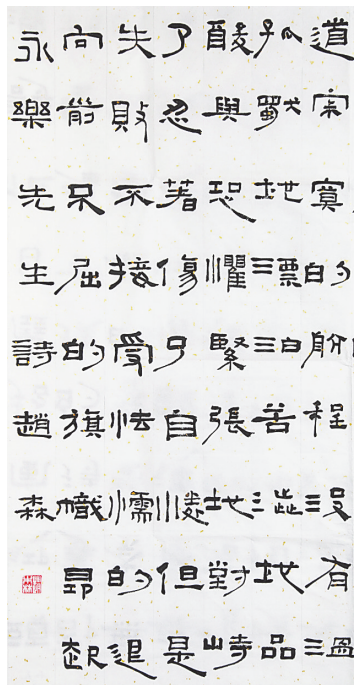 道寂寞的航程沒有溫
孤獨地漂泊苦澀地品
酸與恐懼緊張地對峙
了忍著傷口自但是
失敗不接受怯懦的退
向前屈的旗幟昂起
永樂先生詩趙森